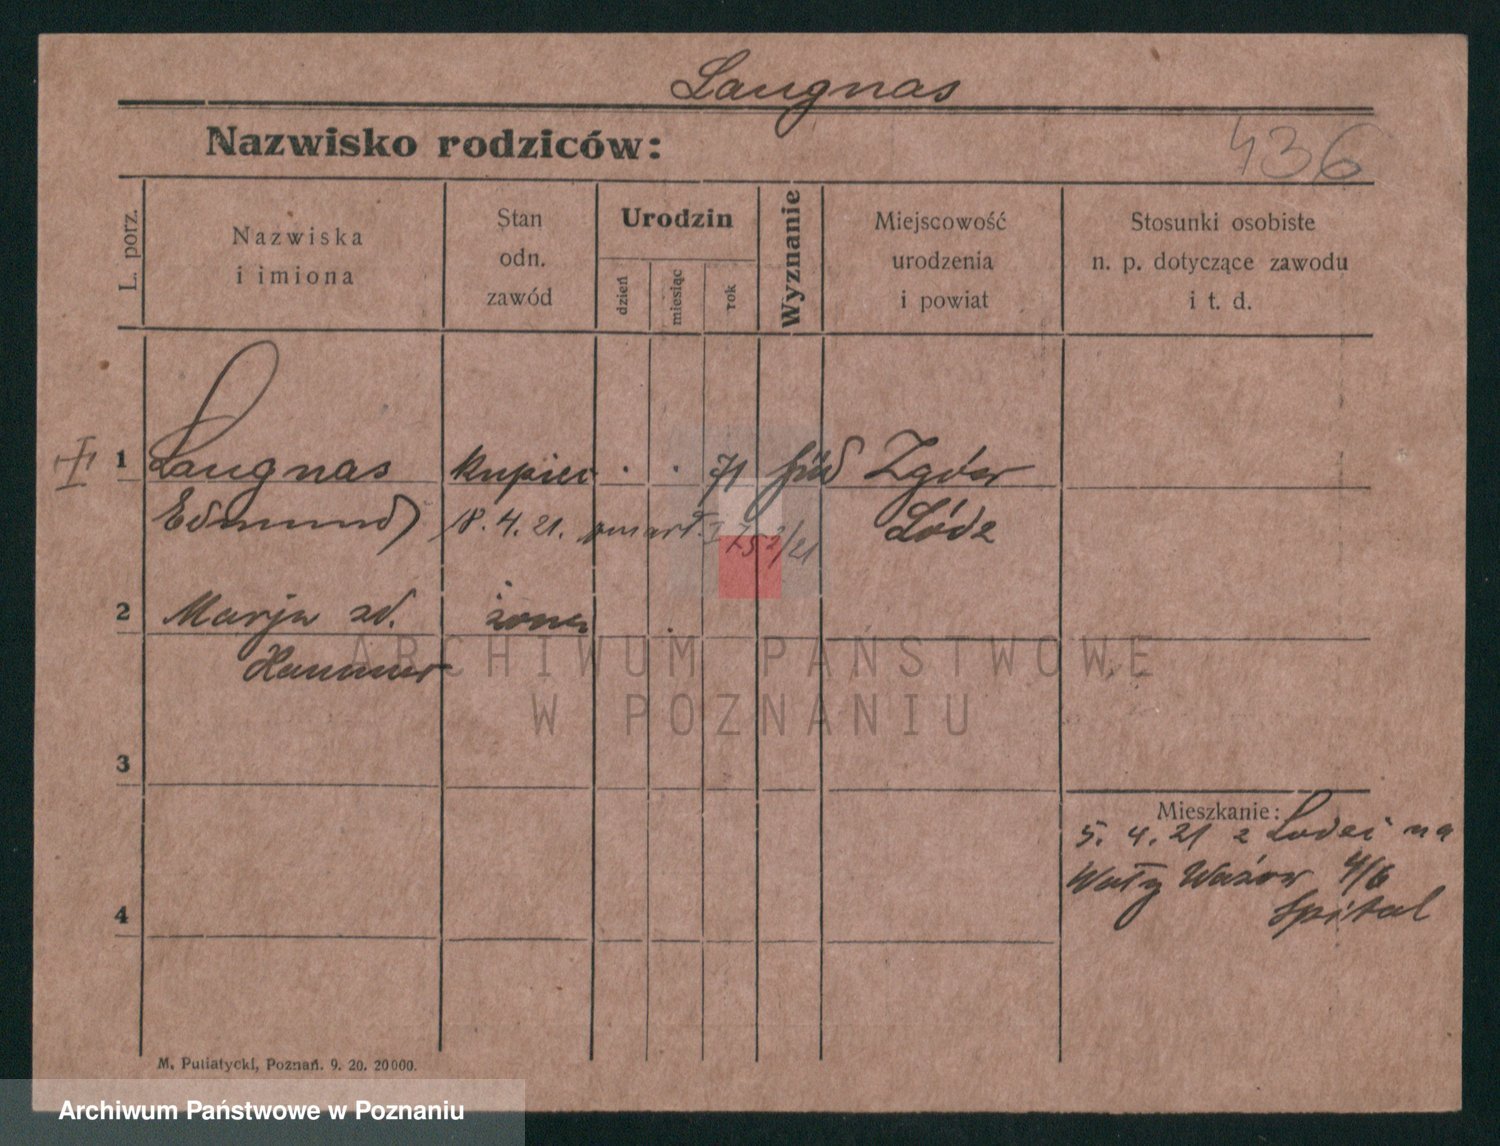 Laugnas
Nazwisko rodziców:
436
L. porz.
Nazwiska
i imiona
Stan
odn.
zawód
Urodzin
dzień
miesiąc
rok
Wyznanie
Miejscowość
urodzenia
i powiat
Stosunki osobiste
n. p. dotyczące zawodu
i t. d.
1 Laugnas kupiec 71
Edmund 18. 4. 21. Łódź
2 Marja zd. żona
3
Mieszkanie:
5. 4. 21 z Lodzi na
Wały 4/6
Spital
4
ARCHIWUM PAŃSTWOWE
W POZNANIU
M. Putiatycki, Poznań. 9. 20. 20000.
Archiwum Państwowe w Poznaniu